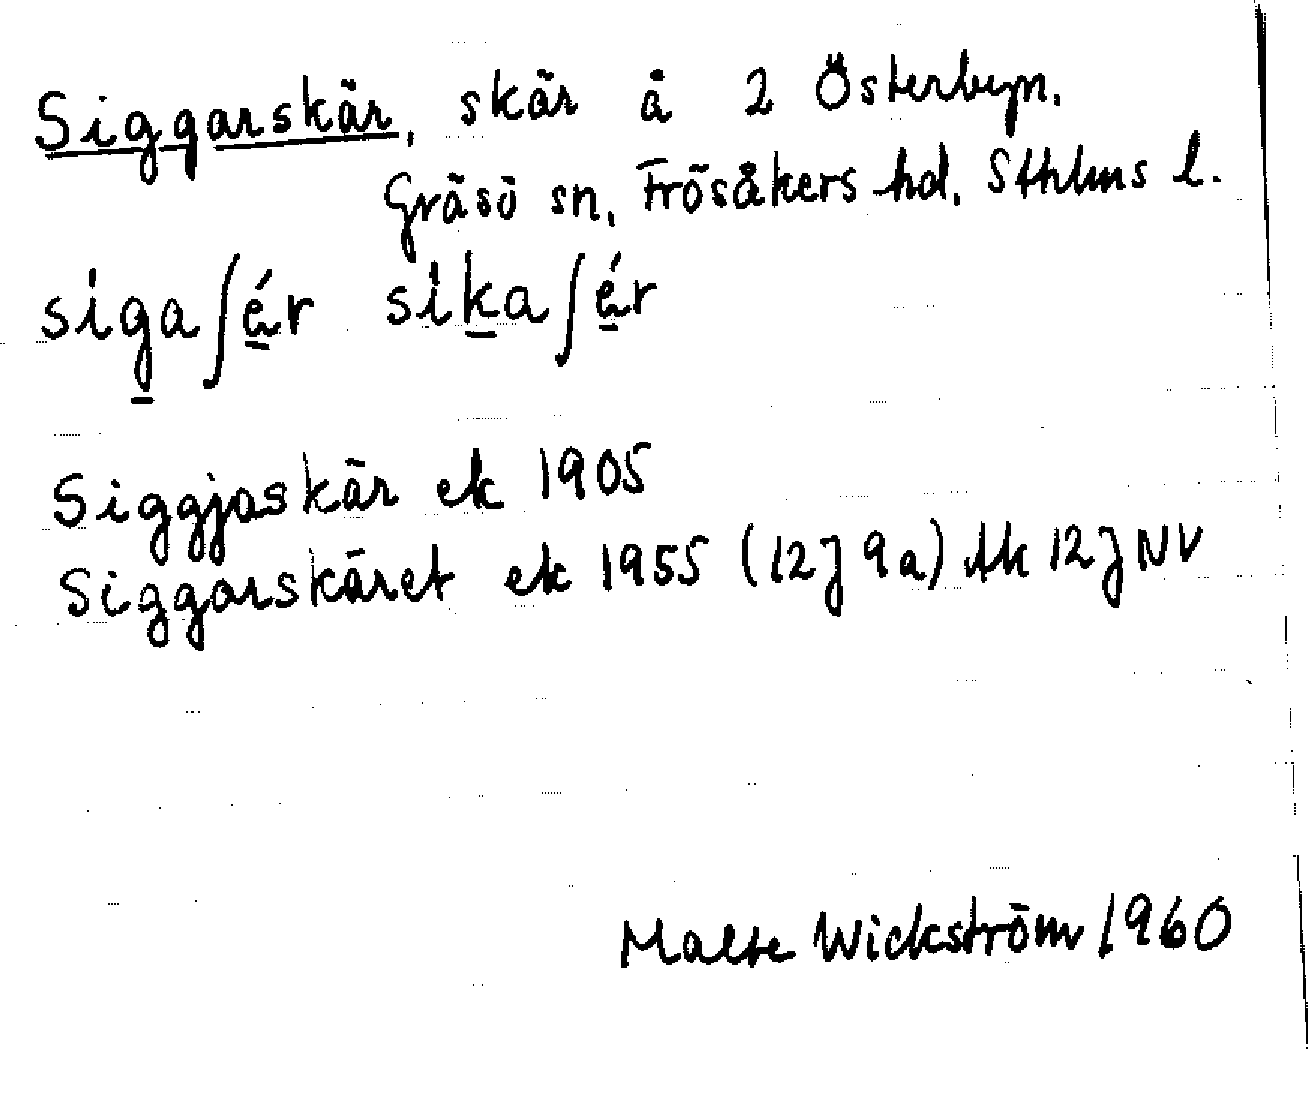 Siggarskär, skär å 2 Österbyn.
Gräsö sn, Frösåkers hd, Sthlms l.
siga̱ʃä̱́r sika̱ʃä̱́r
Siggjaskär ek 1905
Siggarskäret ek 1955 (12J 9a) tk 12J NV
Malte Wickström 1960